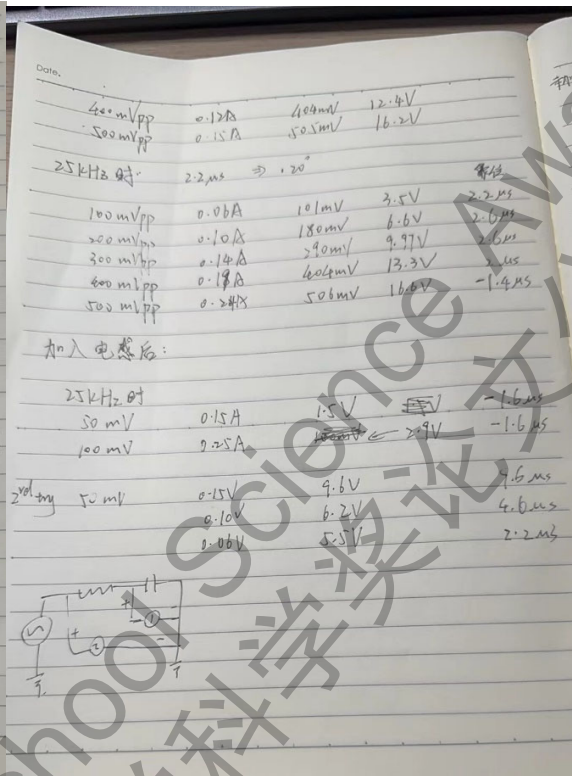 Date.
400mVpp 0.12A 404mV 12.4V
500mVpp 0.15A 505mV 16.2V
25kHz时 2.2μs ⇒ 20°
100mVpp 0.06A 101mV 3.5V 2.2μs
200mVpp 0.10A 180mV 6.6V 2.6μs
300mVpp 0.14A 290mV 9.97V 2.6μs
400mVpp 0.19A 404mV 13.3V 2μs
500mVpp 506mV 16.6V -1.4μs
加入电感后:
25kHz时
50mV 0.15A 1.5V -1.6μs
100mV 0.25A ← 2.9V -1.6μs
2nd try 50mV 0.15V 9.6V
0.10V 6.2V 4.6μs
0.06V 5.5V 2.2μs
+ 1 -
+ 2 -
School Science Awa
科学奖论文